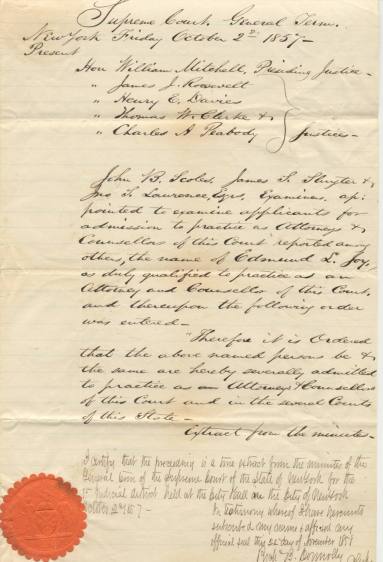 Supreme Court General Term.
New York Friday October 2d 1857-
Present
Hon William Mitchell, Presiding Justice-
" James J. Roosevelt
" Henry E. Davies
" Thomas W. Clerke &
" Charles A Peabody } Justices-
John B. Scoles, James F. Sluyter &
Jno F. Lawrence, Esqrs, Examiners, ap-
pointed to examine applicants for
admission to practice as Attorneys &
Counsellors of this Court reported among
others, the name of Edmund L. Joy,
as duly qualified to practice as an
Attorney and Counsellor of this Court,
and thereupon the following order
was entered-
"Therefore it is Ordered
that the above named persons be &
the same are hereby severally admitted
to practice as an Attorneys & Counsellors
of this Court and in the several Courts
of this State-
Extract from the minutes-
I certify that the preceding is a true extract from the minutes of the
General Term of the Supreme Court of the State of New York for the
1st Judicial District held at the City Hall in the City of New York
October 2d 1857-
In testimony whereof I have hereunto
subscribed my name & affixed my
official seal this 22 day of November 1857
B. Connolly
Clerk